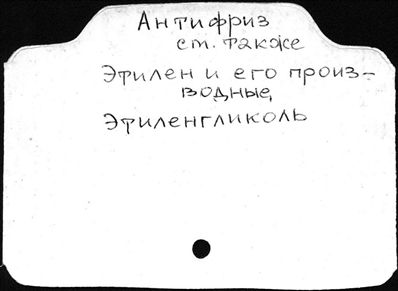 Антифриз
см. также
Этилен и его произ-
водные,
Этиленгликоль